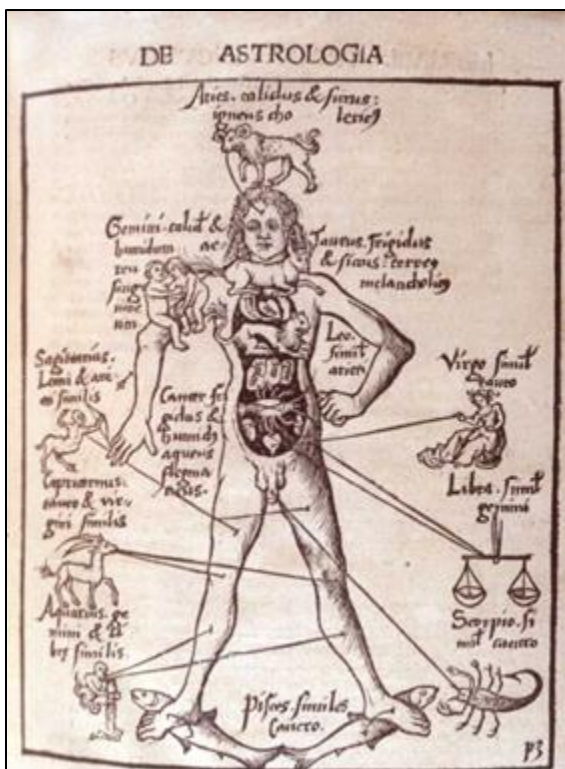 DE ASTROLOGIA
Aries. calidus & siccus:
igneus cho leric9
Gemini. calid9 &
humidum ae
reu
sang
Taurus. frigidus
& siccus: terre9
melancholic9
Leo.
simil9
arieti
Sagittarius.
Leoni & arie
ti similis
Cancer fri
gidus &
humid9
aqueus
flegma
ticus.
Virgo simil9
tauro
Capricornus:
tauro & vir
gini similis
Libra. simil9
gemini
Aquarius. ge
mini & li
bre similis.
Scorpio. si
mil9 cancro
Pisces. similes
Cancro.
p3